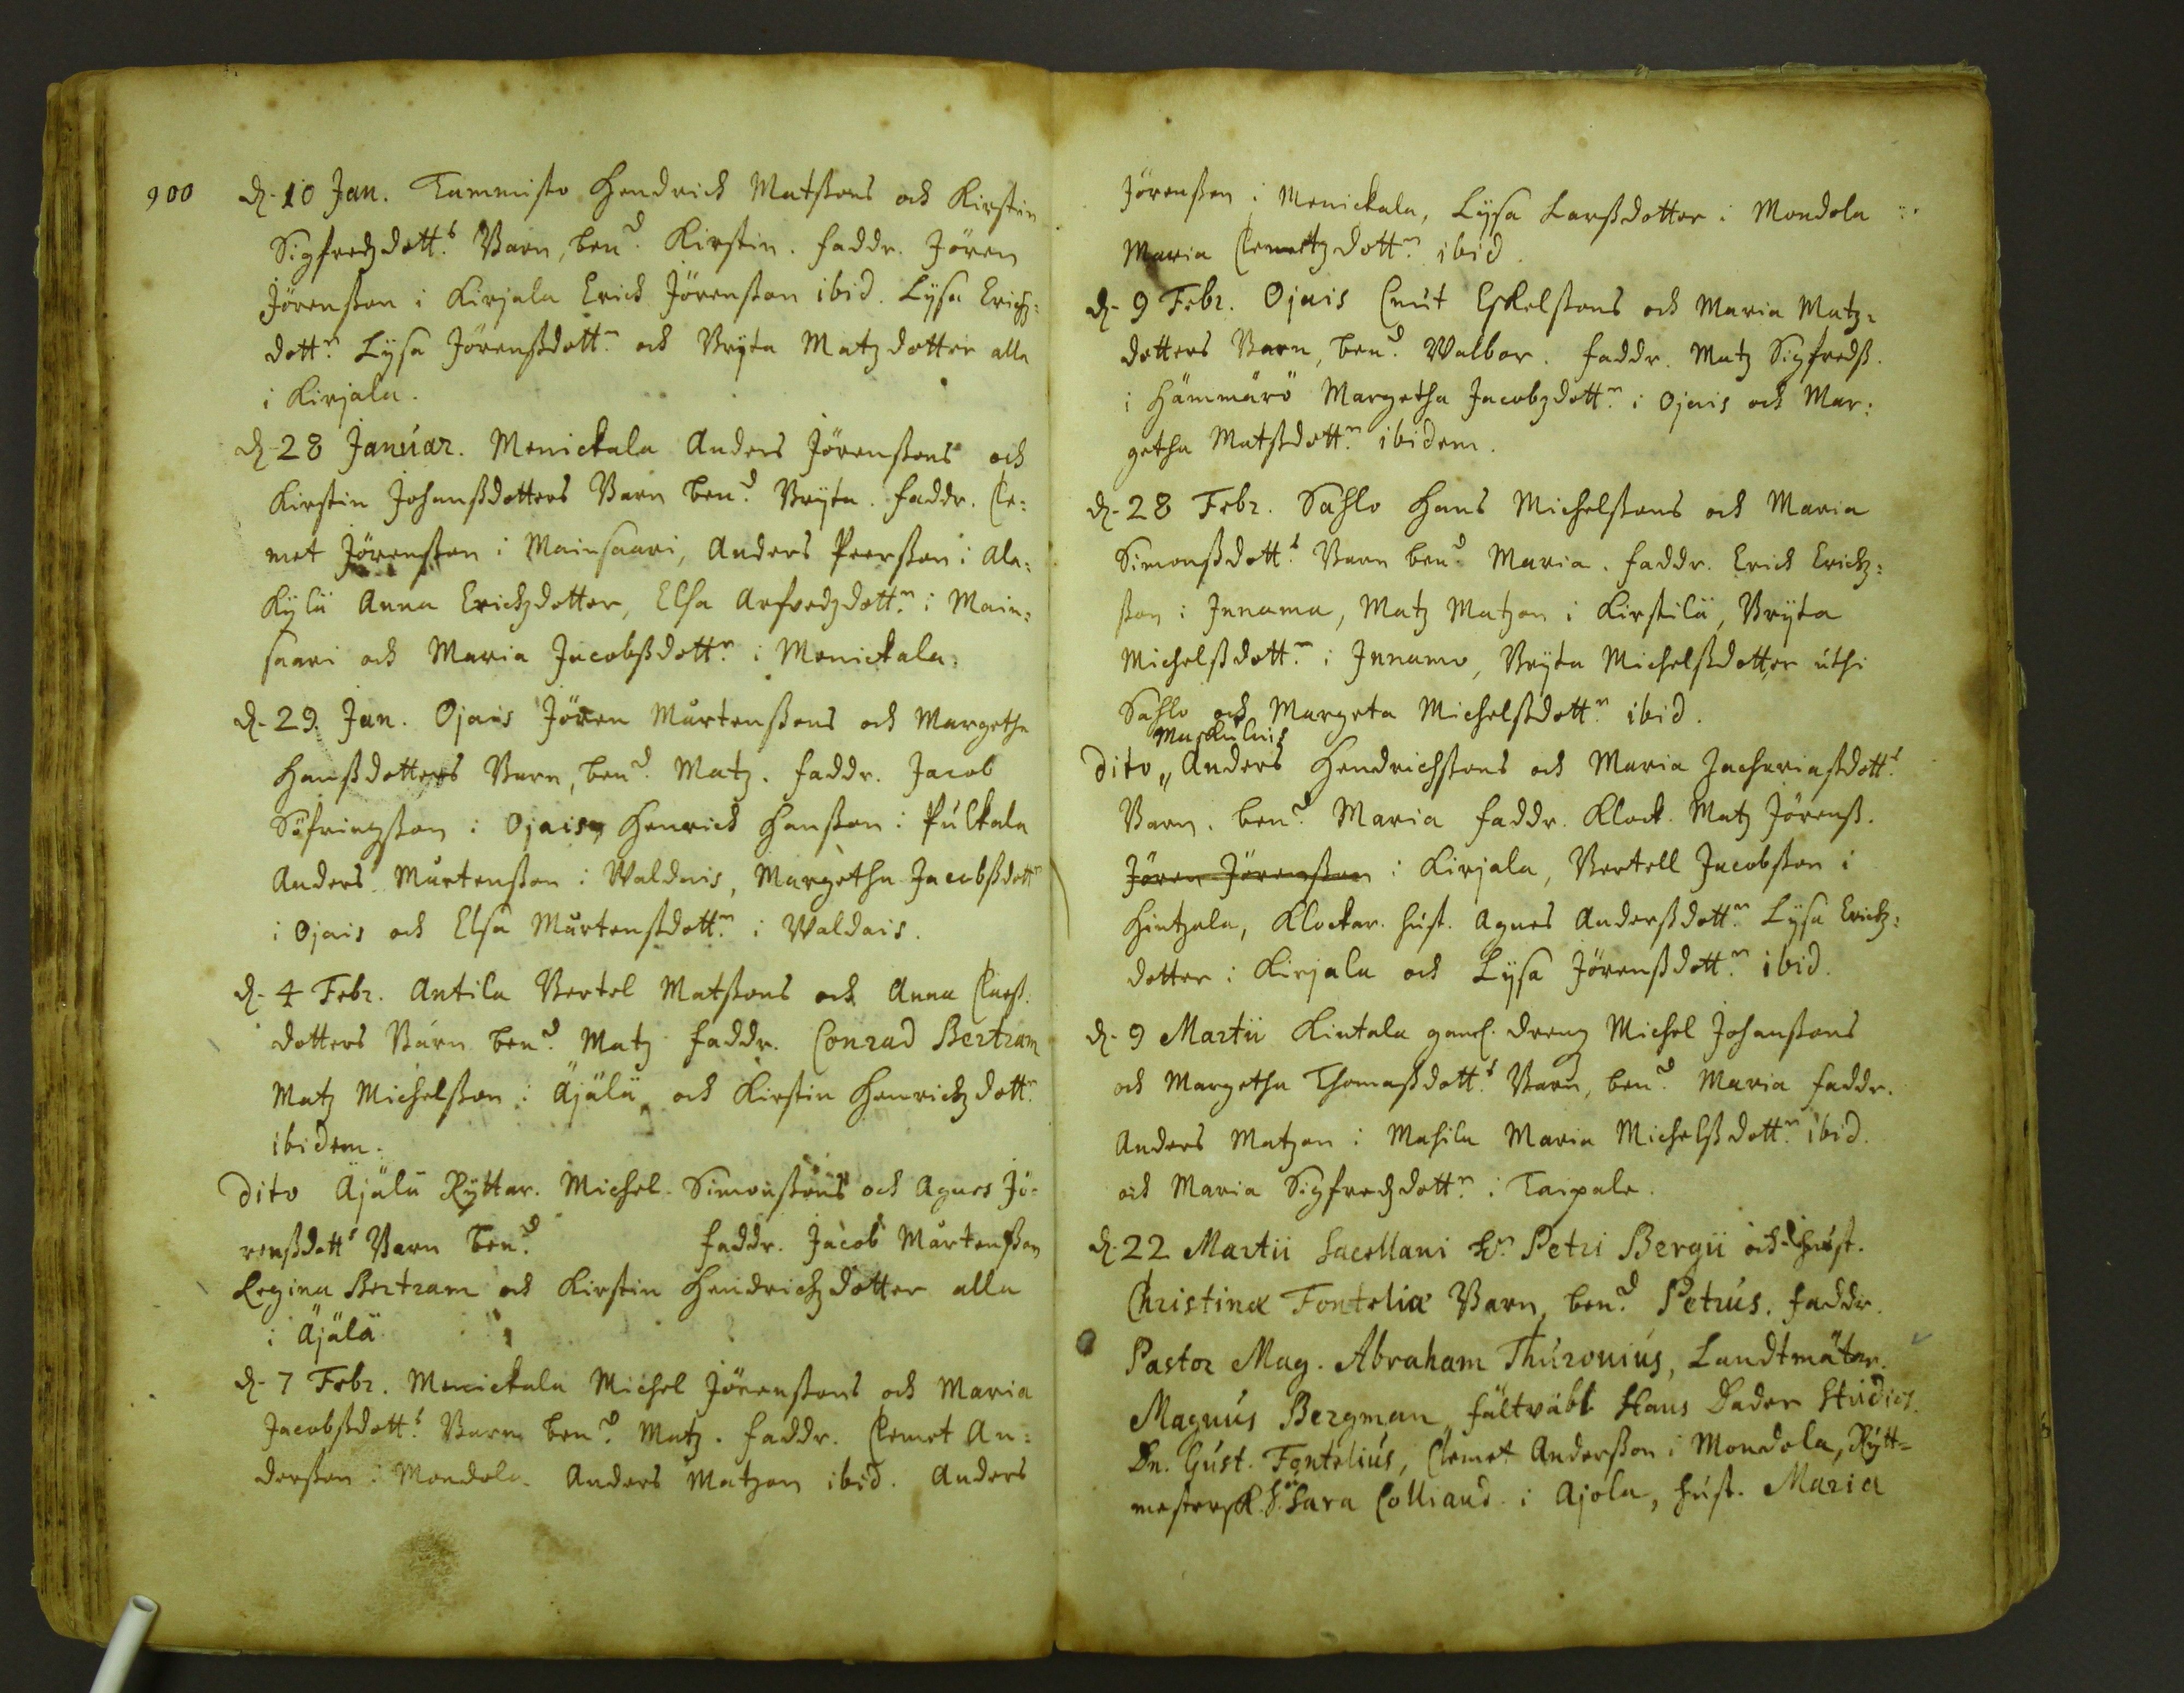 900
d. 10 Jan. Tammisto Hendrick Matssons och Kirstin
Sigfredzdott.s Barn, ben.d Kirstin. faddr. Jören
Jörensson i Kirjala Erick Jörensson ibid. Lysa Erichz:
dott.r Lysa Jörenssdott.r och Bryta Matzdotter alla
i Kirjala.
d. 28 Januar. Menickala Anders Jörenssons och
Kirstin Johanssdotters Barn ben.d Bryta. faddr. Cle:
met Jörensson i Mainsaari, Anders Peersson i Ala:
Kylä Anna Erichzdotter, Elsa Arfvedzdott.r i Main:
saari och Maria Jacobssdott.r i Menickala.
d. 29 Jan. Ojais Jören Mårtenssons och Margetha
Hanssdotters Barn, ben.d Matz. faddr. Jacob
Söfringsson i Ojais, Henrick Hansson i Pulkala
Anders Mårtensson i Waldais, Margetha Jacobssdott.r
i Ojais och Elsa Mårtenssdott.r i Waldais.
d. 4 Febr. Antila Bertel Matssons och Anna Claess.
dotters Barn ben.d Matz faddr. Conrad Bertram
Matz Michelsson i Äjälä och Kirstin Henrichzdott.r
ibidem.
Dito Äjälä Ryttar. Michel Simonssons och Agnes Jö:
renssdott.s Barn ben.d faddr. Jacob Mårtensson
Regina Bertram och Kirstin Hendrichzdotter alla
i Äjälä
d. 7 Febr. Menickala Michel Jörenssons och Maria
Jacobssdott.s Barn ben.d Matz. faddr. Clemet An:
dersson i Mondola. Anders Matzon ibid. Anders
Jörensson i Menickala, Lysa Larssdotter i Mondola
Maria Clemetzdott.r ibid.
d. 9 Febr. Ojais Cnut Eskelssons och Maria Matz:
dotters Barn, ben.d Walbor. faddr. Matz Sigfredss.
i Hämmärö Margetha Jacobzdott.r i Ojais och Mar:
getha Matssdott.r ibidem.
d. 28 Febr. Sahlo Hans Michelssons och Maria
Simonssdott.s Barn ben.d Maria. faddr. Erick Erichz:
son i Innama, Matz Matzon i Kirstilä, Bryta
Michelssdott.r i Innamo, Bryta Michelssdotter uthi
Sahlo och Margeta Michelssdott.r ibid.
Maskulais
Dito „ Anders Hendrichssons och Maria Zachariassdott.s
Barn. ben.d Maria faddr. Klock. Matz Jörenss.
Jören Jörensson i Kirjala, Bertell Jacobsson i
Hintzala, Klockar. hust. Agnes Anderssdott.r Lysa Erichz:
dotter i Kirjala och Lysa Jörenssdott.r ibid.
d. 9 Martii Kintala dreng Michel Johanssons
och Margetha Thomassdott.s Barn, ben.d Maria faddr.
Anders Matzon i Masila Maria Michelssdott.r ibid.
och Maria Sigfredzdott.r i Taipale.
d. 22 Martii Sacellani H.r Petri Bergii och hust.
Christinæ Fonteliæ Barn, ben.d Petrus. faddr.
Pastor Mag. Abraham Thuronius, Landtmäter.
Magnus Bergman, fältväbl Hans Bader Studios.
Dn. Gust. Fontelius, Clemet Andersson i Mondola, Rytt=
mestersk. Sara Colliand. i Ajola, hust. Maria